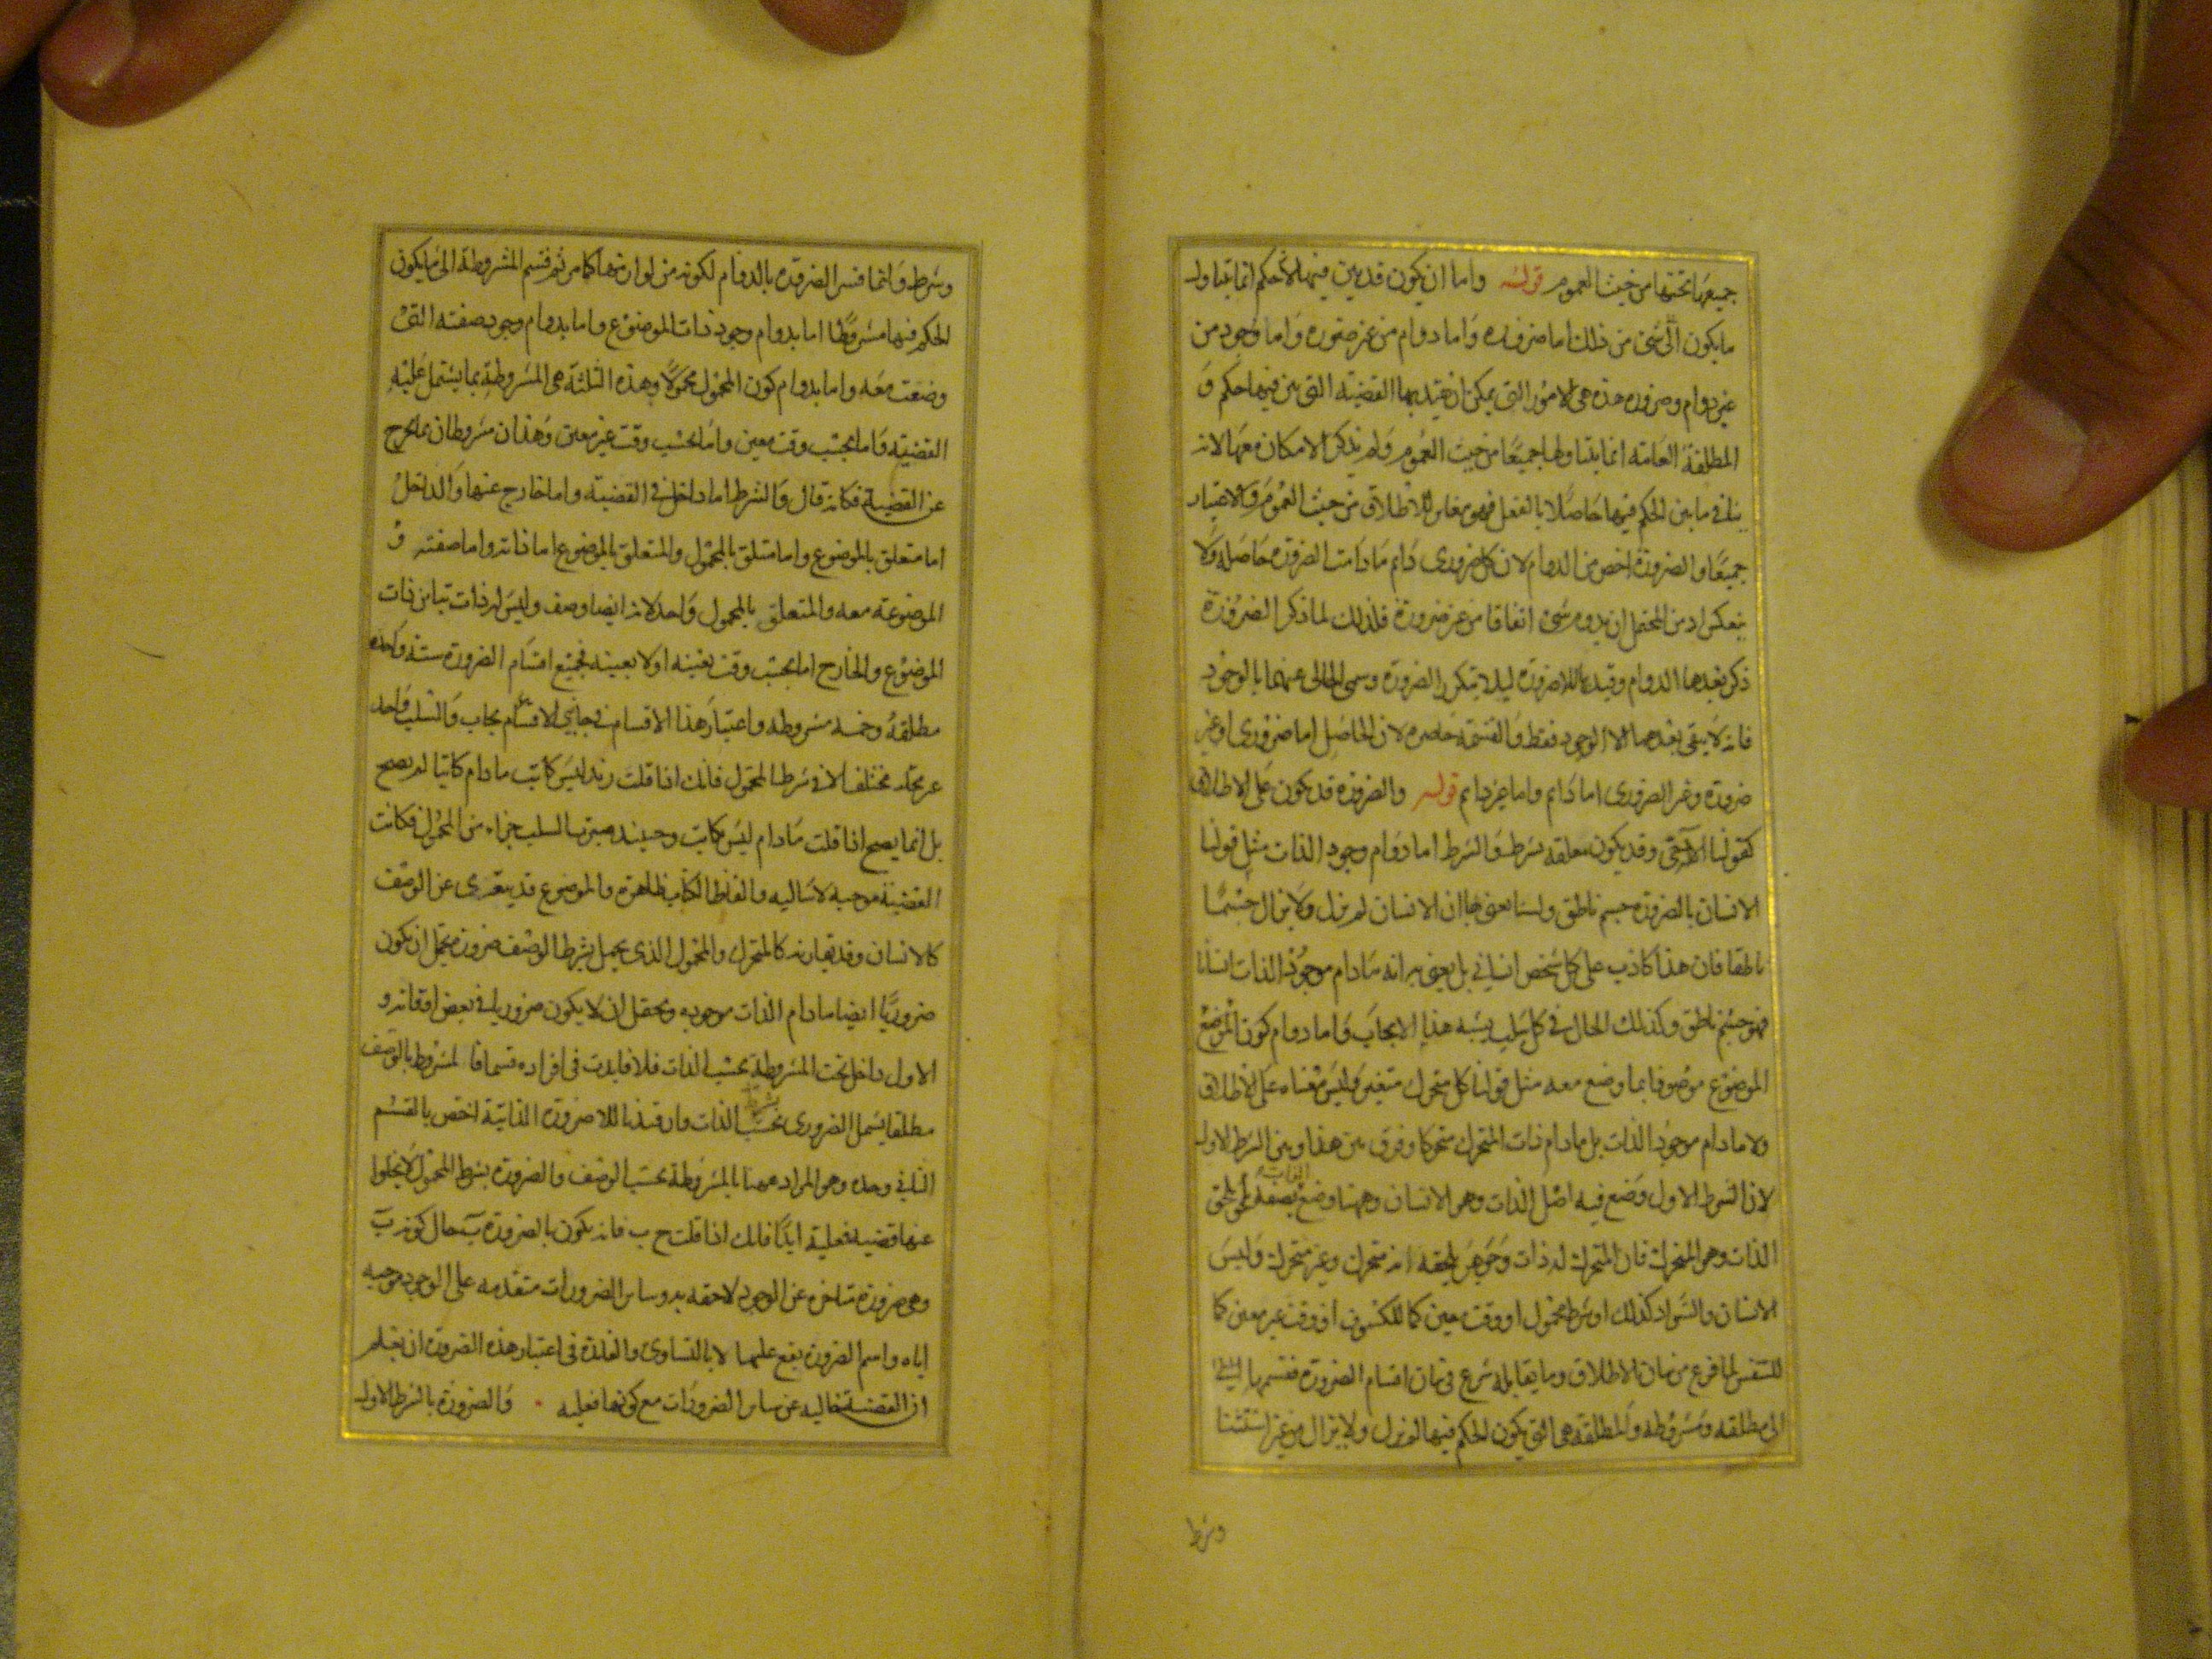 جميع ما تحتها من حيث العموم قوله واما ان يكون قد بين فيها الا حكم انما يتناول
ما يكون الشئ من ذلك اما ضروره واما دوام من غير ضروره واما وجود من
غير دوام وضروره هذه هي الامور التي يمكن ان يقيد بها القضية التي بين فيها حكم و
المطلقة العامة انما يتناولها جميعا من حيث العموم ولم يذكر الامكان معها لانه
ينافي ما بين الحكم فيها حاصلا بالفعل فهو مغاير للاطلاق من حيث العموم والاعتبار
جميعا والضرورة اخص من الدوام لان كل ضروري دائم مادامت الضرورة حاصلة ولا
ينعكس اذ من المحتمل ان يدوم شئ اتفاقا من غير ضرورة فلذلك لما ذكر الضرورة
ذكر بعدها الدوام وقيده باللاضرورة ليلا يتكرر الضرورة وسمى الخالي عنهما بالوجود
فانه لا يبقى بعدهما الا الوجود فقط والقسمة حاصره لان الحاصل اما ضروري او غير
ضرورة وغير الضروري اما دايم واما غير دايم قوله والضرورة قد يكون على الاطلاق
كقولنا الله حي وقد يكون معلقه بشرط والشرط اما دوام وجود الذات مثل قولنا
الانسان بالضرورة جسم ناطق ولسنا نعني بها ان الانسان لم يزل ولا يزال جسما
ناطقا فان هذا كاذب على كل شخص انساني بل يعني به انه ما دام موجود الذات انسانا
فهو جسم ناطق وكذلك الحال في كل سلب يشبه هذا الايجاب واما دوام كون الموضع
الموضوع موصوفا بما وضع معه مثل قولنا كل متحرك متغير وليس معناه على الاطلاق
ولا مادام موجود الذات بل ما دام ذات المتحرك متحركا وفرق بين هذا وبين الشرط الاول
لان الشرط الاول وضع فيه اصل الذات وهو الانسان وههنا وضع الذات بصفة تلحق
الذات وهو المتحرك فان المتحرك له ذات وجوهر يلحقه انه متحرك وغير متحرك وليس
الانسان والسواد كذلك او شرط محمول او وقت معين كما للكسوف او وقت غير معين كما
للتنفس لما فرع من بيان الاطلاق وما يقابله شرع في بيان اقسام الضرورة فقسمها
الى مطلقه ومشروطه والمطلقه هي التي يكون الحكم فيها لم يزل ولا يزال من غير استثنا
وشرط
وشرط وانما فسر الضرورة بالدوام لكونه من لوازمها كما مر ثم قسم المشروطة الى ما يكون
الحكم فيها مشروطا اما بدوام وجود ذات الموضوع واما بدوام وجود صفته التي
وضعت معه واما بدوام كون المحمول محمولا وهذه الثلثة هي المشروطة بما يشتمل عليه
القضية واما بحسب وقت معين واما بحسب وقت غير معين وهذان مشروطان بما يخرج
عن القضية فكانه قال والشرط اما داخل في القضية واما خارج عنها والداخل
اما متعلق بالموضوع واما متعلق بالمحمول والمتعلق بالموضوع اما ذاته واما صفته و
الموضوعة معه والمتعلق بالمحمول واحد لانه ايضا وصف وليس له ذات تباين ذات
الموضوع والخارج اما بحسب وقت بعينه او لا بعينه فجميع اقسام الضرورة ستة واحده
مطلقة وخمسه مشروطه واعتبار هذا الاقسام في جانبي الاقسام يجاب والسلب واحد
غير مختلف الا في شرط المحمول فانك اذا قلت زيد ليس كاتب مادام كاتبا لم يصح
بل انما يصح اذا قلت مادام ليس بكاتب وحينئذ يصير السلب جزاء من المحمول فكانت
القضية موجبة لا ساليه والفاظ الكتاب ظاهرة والموضوع قد يتعرى عن الوصف
كالانسان وقد يقارنه كالمتحرك والمحمول الذي يحمل بشرط الوصف ضرورة يحتمل ان يكون
ضروريا ايضا مادام الذات موجوده ويحتمل ان لا يكون ضروريا في بعض اوقاته و
الاول داخل تحت المشروطة بحسب الذات فلا فايدت في افراده قسما فالمشروط بالوصف
مطلقا يشمل الضروري بحسب الذات وان قيدنا باللاضرورة الذاتية اختص بالقسم
الثاني وحده وهو المراد ههنا بالمشروطة بحسب الوصف والضرورة بشرط المحمول لا يخلوا
عنها قضية فعلية ابدا فانك اذا قلت ج ب فانه يكون بالضرورة ب حال كونه ب
وهي ضرورة متاخرة عن الوجود لاحقه به وساير الضرورات متقدمه على الوجود موجبه
اياه واسم الضرورة يقع عليهما لا بالتساوي والفائدة في اعتبار هذه الضرورة ان يعلم
ان القضية خاليه عن ساير الضرورات مع كونها فعليه والضرورة بالشرط الاول